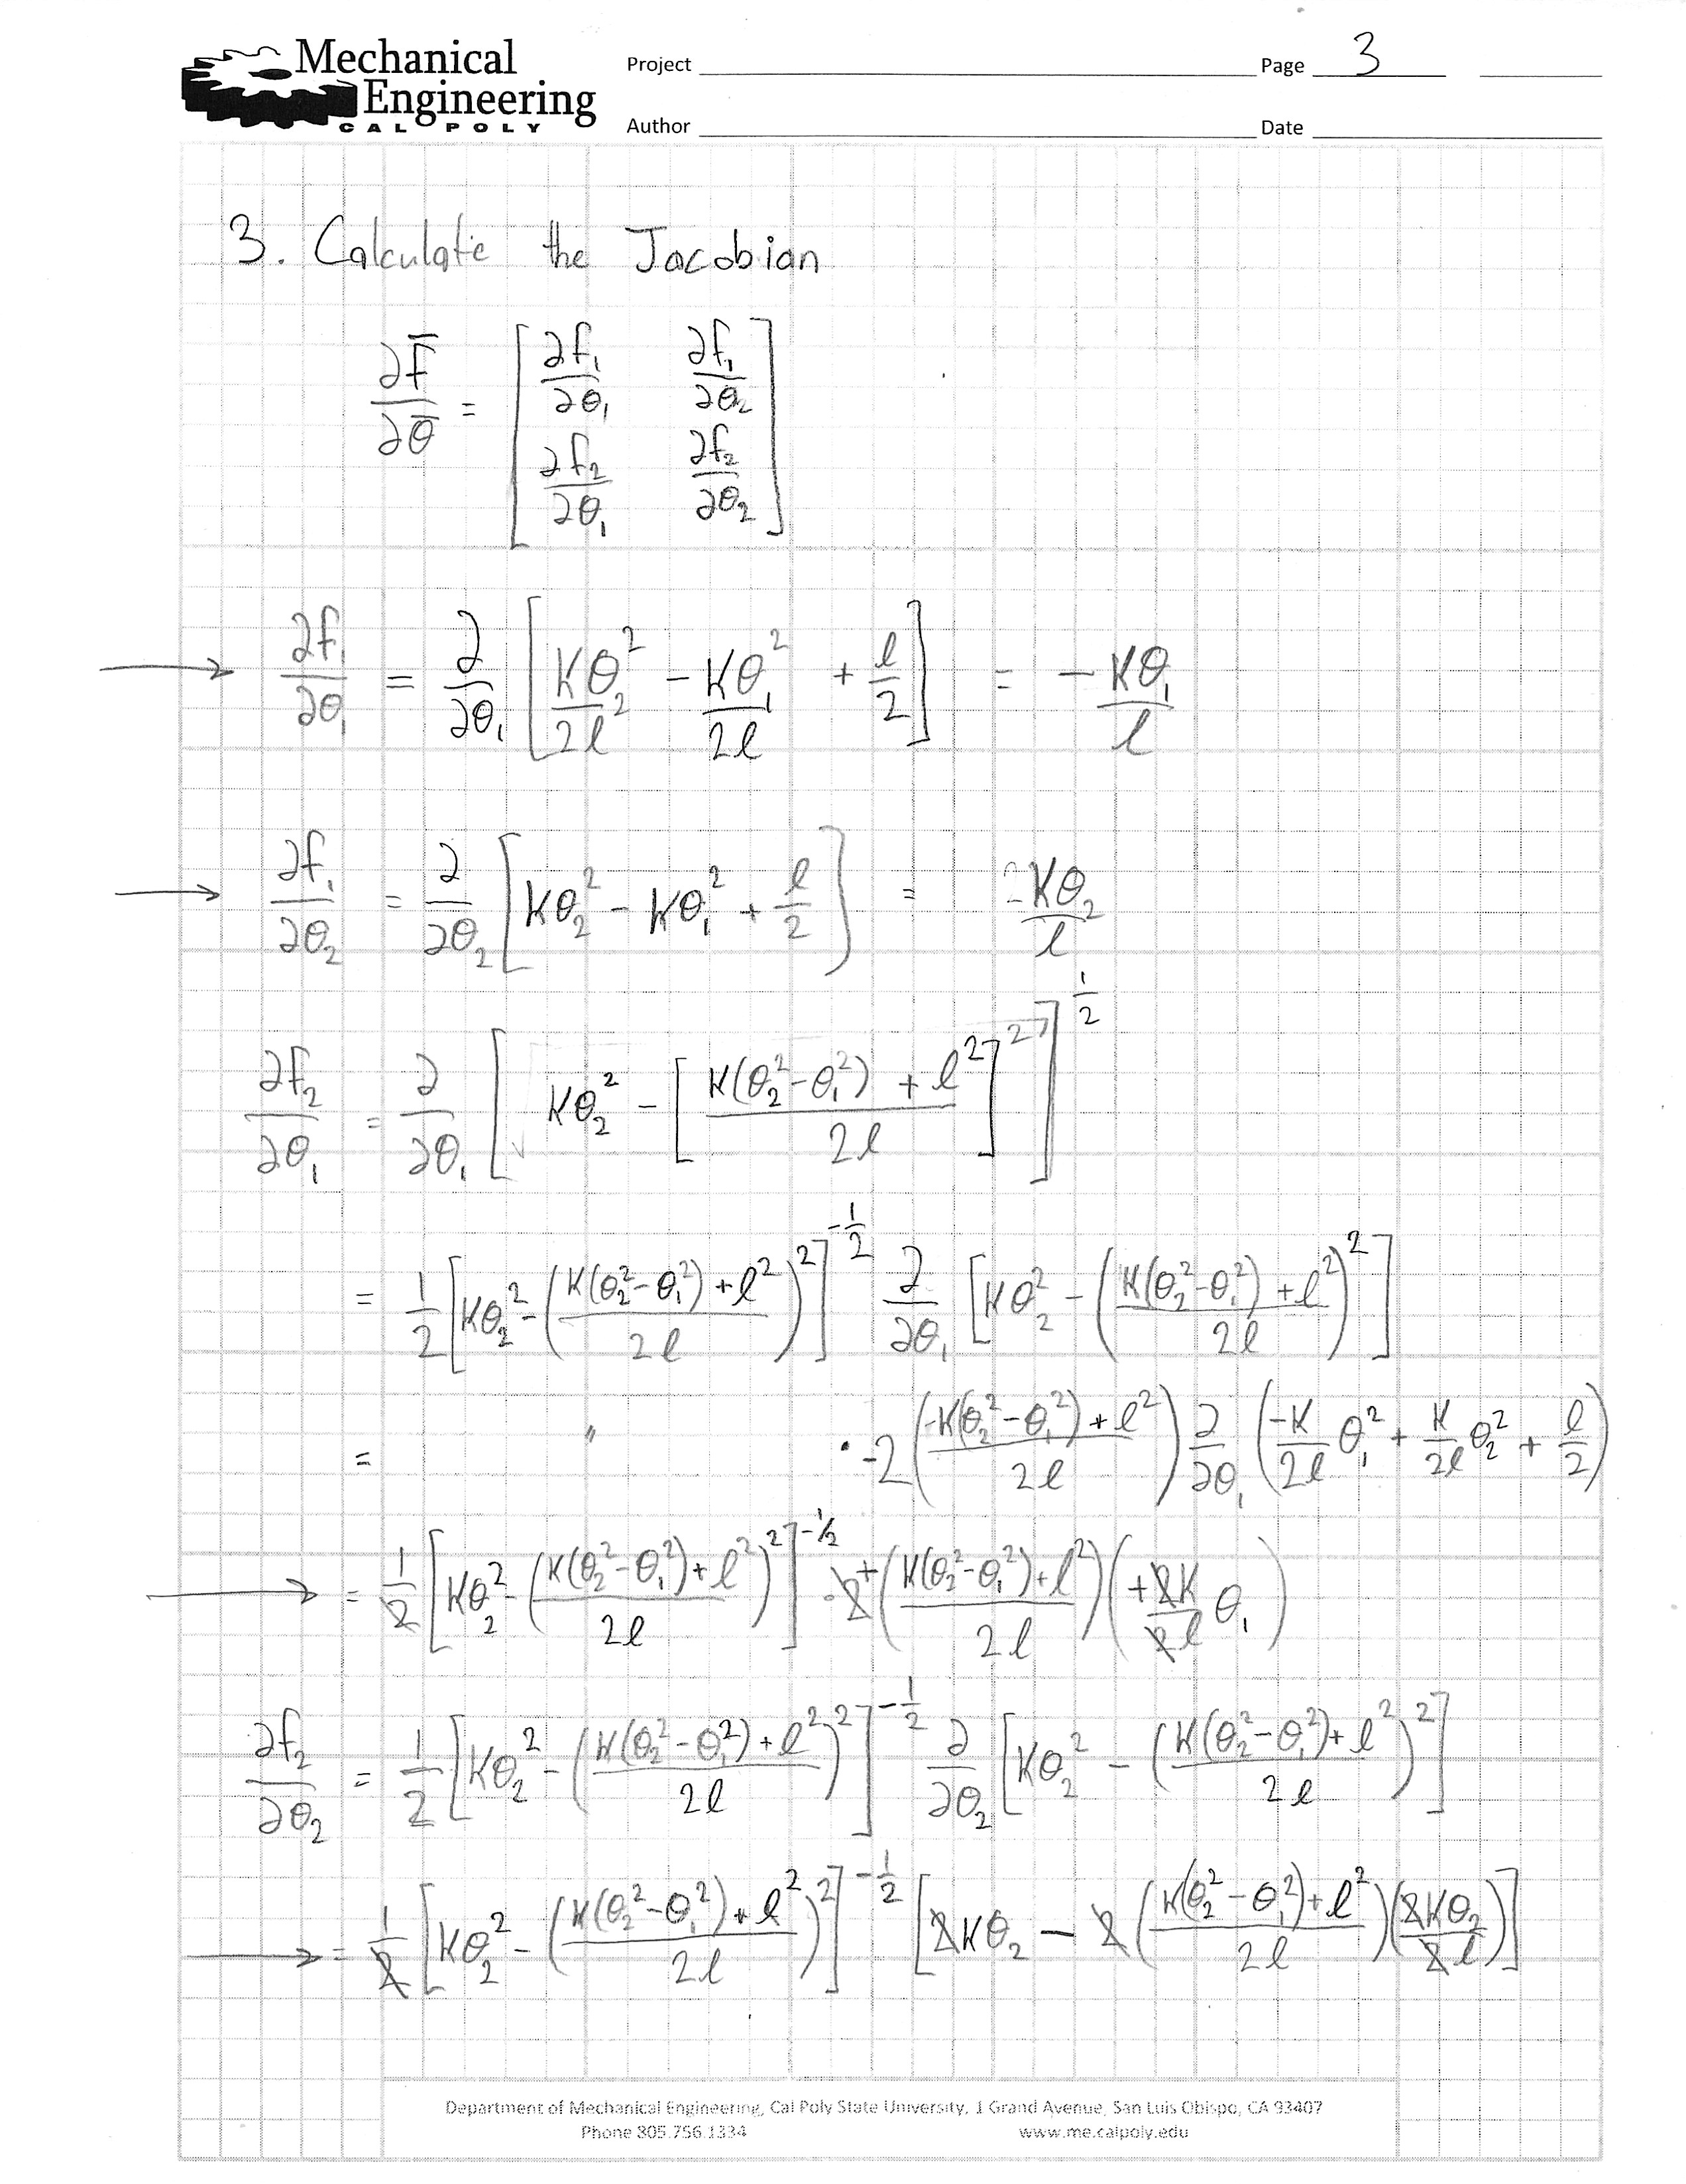 Mechanical
Engineering
CAL POLY
Project
Page 3
Author
Date
3. Calculate the Jacobian
∂F̄/∂θ̄ = [ ∂f₁/∂θ₁ ∂f₁/∂θ₂
∂f₂/∂θ₁ ∂f₂/∂θ₂ ]
→ ∂f₁/∂θ₁ = ∂/∂θ₁ [ Kθ₂²/2l - Kθ₁²/2l + l/2 ] = -Kθ₁/l
→ ∂f₁/∂θ₂ = ∂/∂θ₂ [ Kθ₂² - Kθ₁² + l/2 ] = Kθ₂/l
∂f₂/∂θ₁ = ∂/∂θ₁ [ Kθ₂² - [ (K(θ₂²-θ₁²) + l²)/2l ]² ]^(1/2)
= 1/2 [ Kθ₂² - ( (K(θ₂²-θ₁²) + l²)/2l )² ]^(-1/2) ∂/∂θ₁ [ Kθ₂² - ( (K(θ₂²-θ₁²) + l²)/2l )² ]
= " · -2 ( (-K(θ₂²-θ₁²) + l²)/2l ) ∂/∂θ₁ ( -K/2l θ₁² + K/2l θ₂² + l/2 )
→ = 1/2 [ Kθ₂² - ( (K(θ₂²-θ₁²) + l²)/2l )² ]^(-1/2) · 2 + ( (K(θ₂²-θ₁²) + l²)/2l ) ( +2K/2l θ₁ )
∂f₂/∂θ₂ = 1/2 [ Kθ₂² - ( (K(θ₂²-θ₁²) + l²)/2l )² ]^(-1/2) ∂/∂θ₂ [ Kθ₂² - ( (K(θ₂²-θ₁²) + l²)/2l )² ]
→ = 1/2 [ Kθ₂² - ( (K(θ₂²-θ₁²) + l²)/2l )² ]^(-1/2) [ 2Kθ₂ - 2 ( (K(θ₂²-θ₁²) + l²)/2l ) ( 2Kθ₂/2l ) ]
Department of Mechanical Engineering, Cal Poly State University, 1 Grand Avenue, San Luis Obispo, CA 93407
Phone 805.756.1334 www.me.calpoly.edu